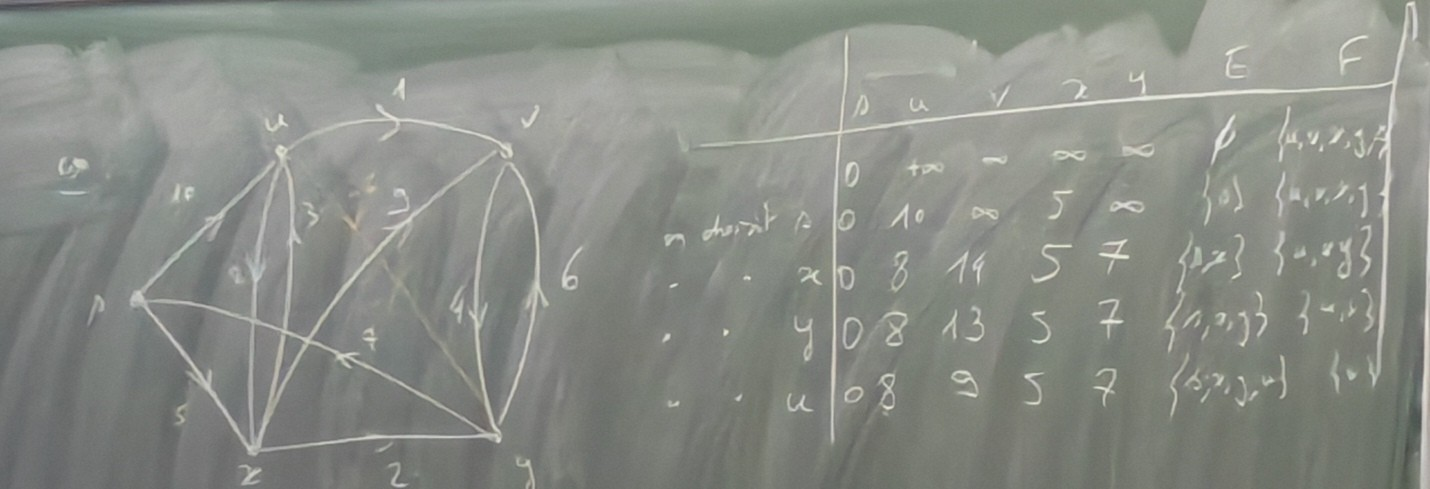 1
u
v
10
3
9
2
4
6
s
7
5
x
2
y
s u v x y E F
0 +∞ ∞ ∞ ∞ ∅ {u,v,x,y,s}
on choisit s 0 10 ∞ 5 ∞ {s} {u,v,x,y}
" " x 0 8 14 5 7 {s,x} {u,v,y}
" " y 0 8 13 5 7 {s,x,y} {u,v}
" " u 0 8 9 5 7 {s,x,y,u} {v}